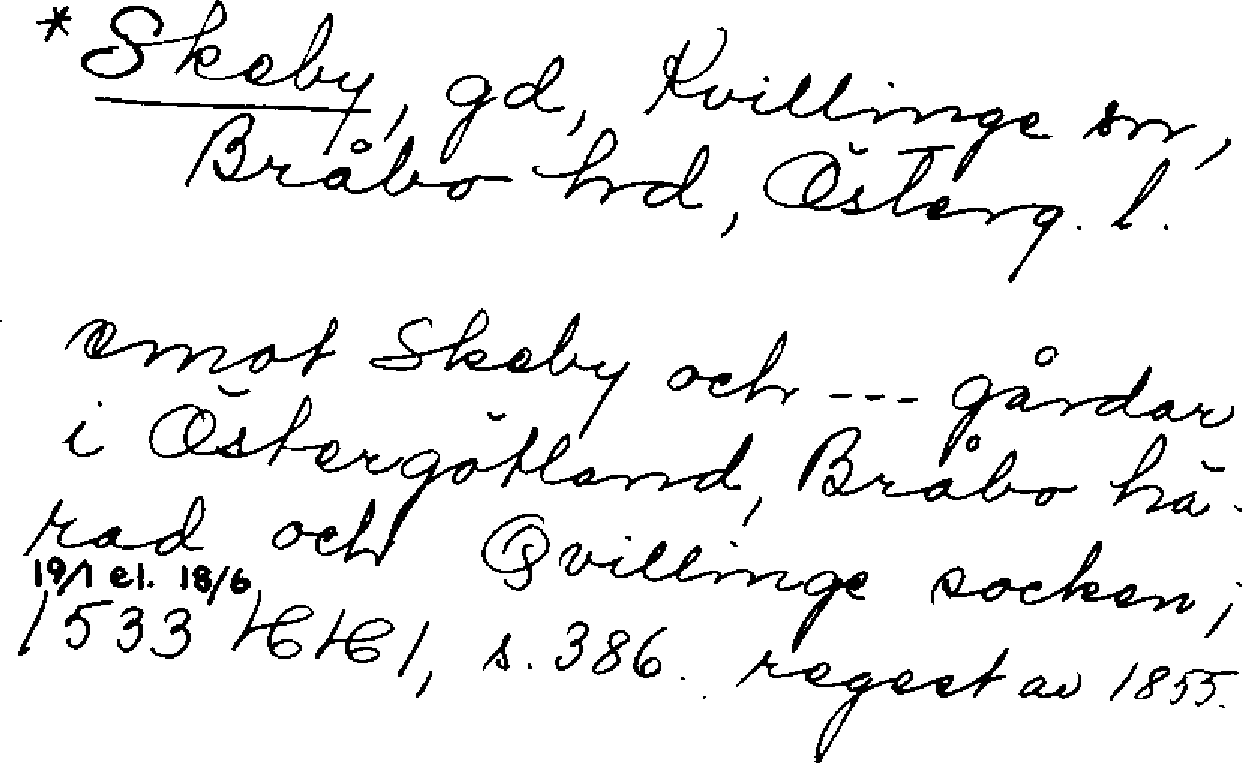 * Skeby, gd, Kvillinge sn,
Bråbo hd, Österg. l.
emot Skeby och --- gårdar
i Östergötland, Bråbo hä-
rad och Qvillinge socken;
19/1 el. 18/6
1533 HH 1, s. 386. regest av 1855.